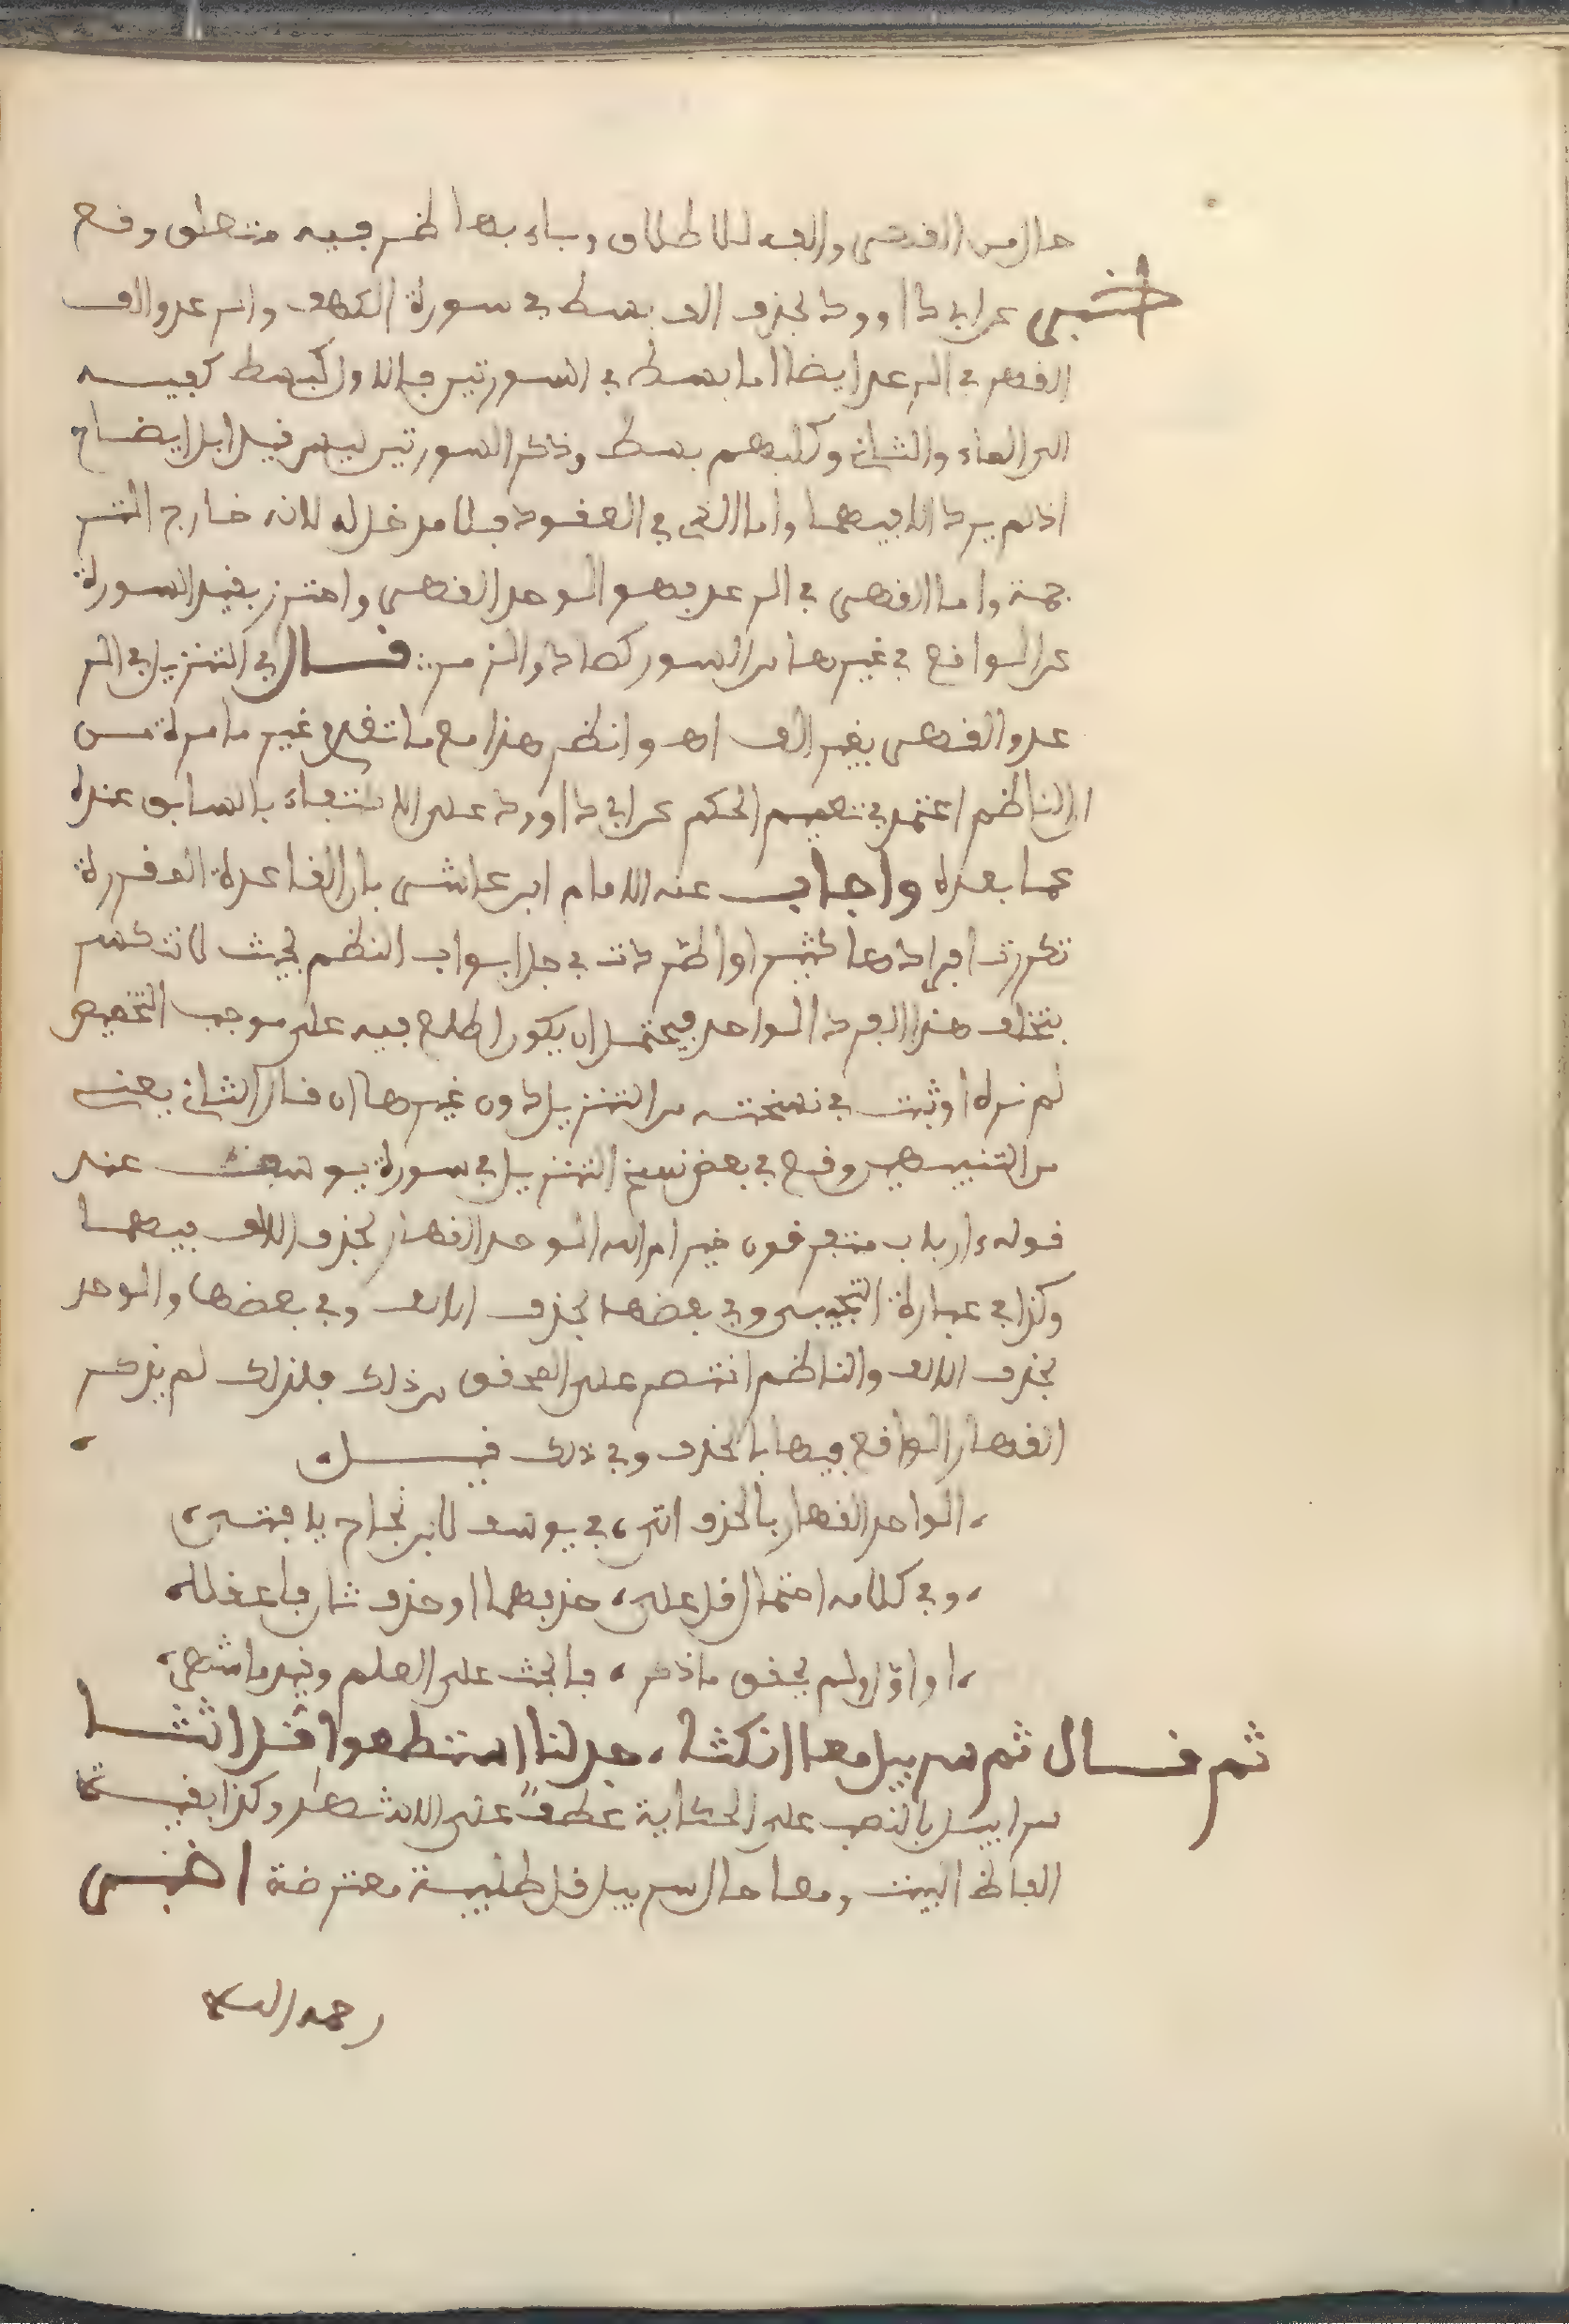 حال من القهر والفه للاطلاق وباء بها ظرفيه متعلق وقع
اخبر عن ابي داوود بحذف الف بسط في سورة الكهف والرعد والف
القهر في الرعد ايضا اما بسط في السورتين فالاول كبسط كفيه
الى الماء والثاني وكلبهم بسط وذكر السورتين ليس قيدا بل ايضاح
اذ لم يرد الا فيهما واما الذي في العقود فلا مدخل له لانه خارج التر
جمة واما القهر في الرعد فهو الوحد القهر واحترز بقيد السورة
عن الواقع في غيرها من السور كصاد والزمر قال في التنزيل في الر
عد والقهر بغير الف اهـ وانظر هذا مع ما تقدم غير ما مرة من
ان الناظم اعتمد في تعميم الحكم عن ابي داوود على الاكتفاء بالسابق عنده
عما بعده واجاب عنه الامام ابن عاشر بان القاعدة المقررة
تكررت افرادها كثيرا واطردت في جل ابواب النظم بحيث لا تنكسر
بتخلف هذا الفرد الواحد فيحتمل ان يكون اطلع فيه على موجب التخصيص
لم نره او ثبت في نسخته من التنزيل دون غيرها ان قال الثاني يعني
من التنبيهين وقع في بعض نسخ التنزيل في سورة يوسف عند
قوله ءارباب متفرقون خير ام الله الوحد القهار بحذف الالف فيهما
وكذا في عبارة التجيبي وفي بعضها بحذف الالف وفي بعضها والوحد
بحذف الالف والناظم اقتصر على المحقق من ذلك فلذلك لم يذكر
القهار الواقع فيها بالحذف وفي ذلك قيل
الواحد القهار بالحذف اتى، في يوسف لابن نجاح يا فتى
وفي كلامه احتمال قل على، حذفهما او حذف ثان فاعقلا
او اول ولم يحقق ما ذكر، فابحث على العلم وقيد ما شهر
ثم قال ثم سربيل معا انكثا، جدلنا استطعوا قل اثثا
سرابيل بالنصب على الحكاية عطفا على الانشهار وكذا بقية
الفاظ البيت ومعا حال سربيل قل طلبية معترضة اخبر
رحمه الله